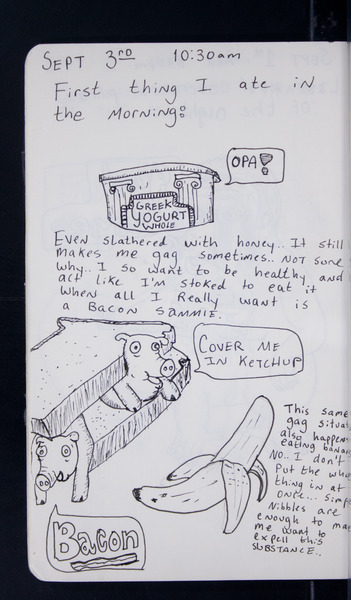 SEPT 3RD 10:30am
First thing I ate in
the morning:
OPA!
GREEK
YOGURT
WHOLE
Even slathered with honey.. It still
makes me gag sometimes.. not sure
why.. I so want to be healthy and
act like I'm stoked to eat it
when all I really want is
a Bacon Sammie.
COVER ME
IN KETCHUP
This same
gag
also
eating
No.. I don't
Put the
thing in at
once...
Nibbles are
enough to
me want to
expell this
SUBSTANCE..
Bacon